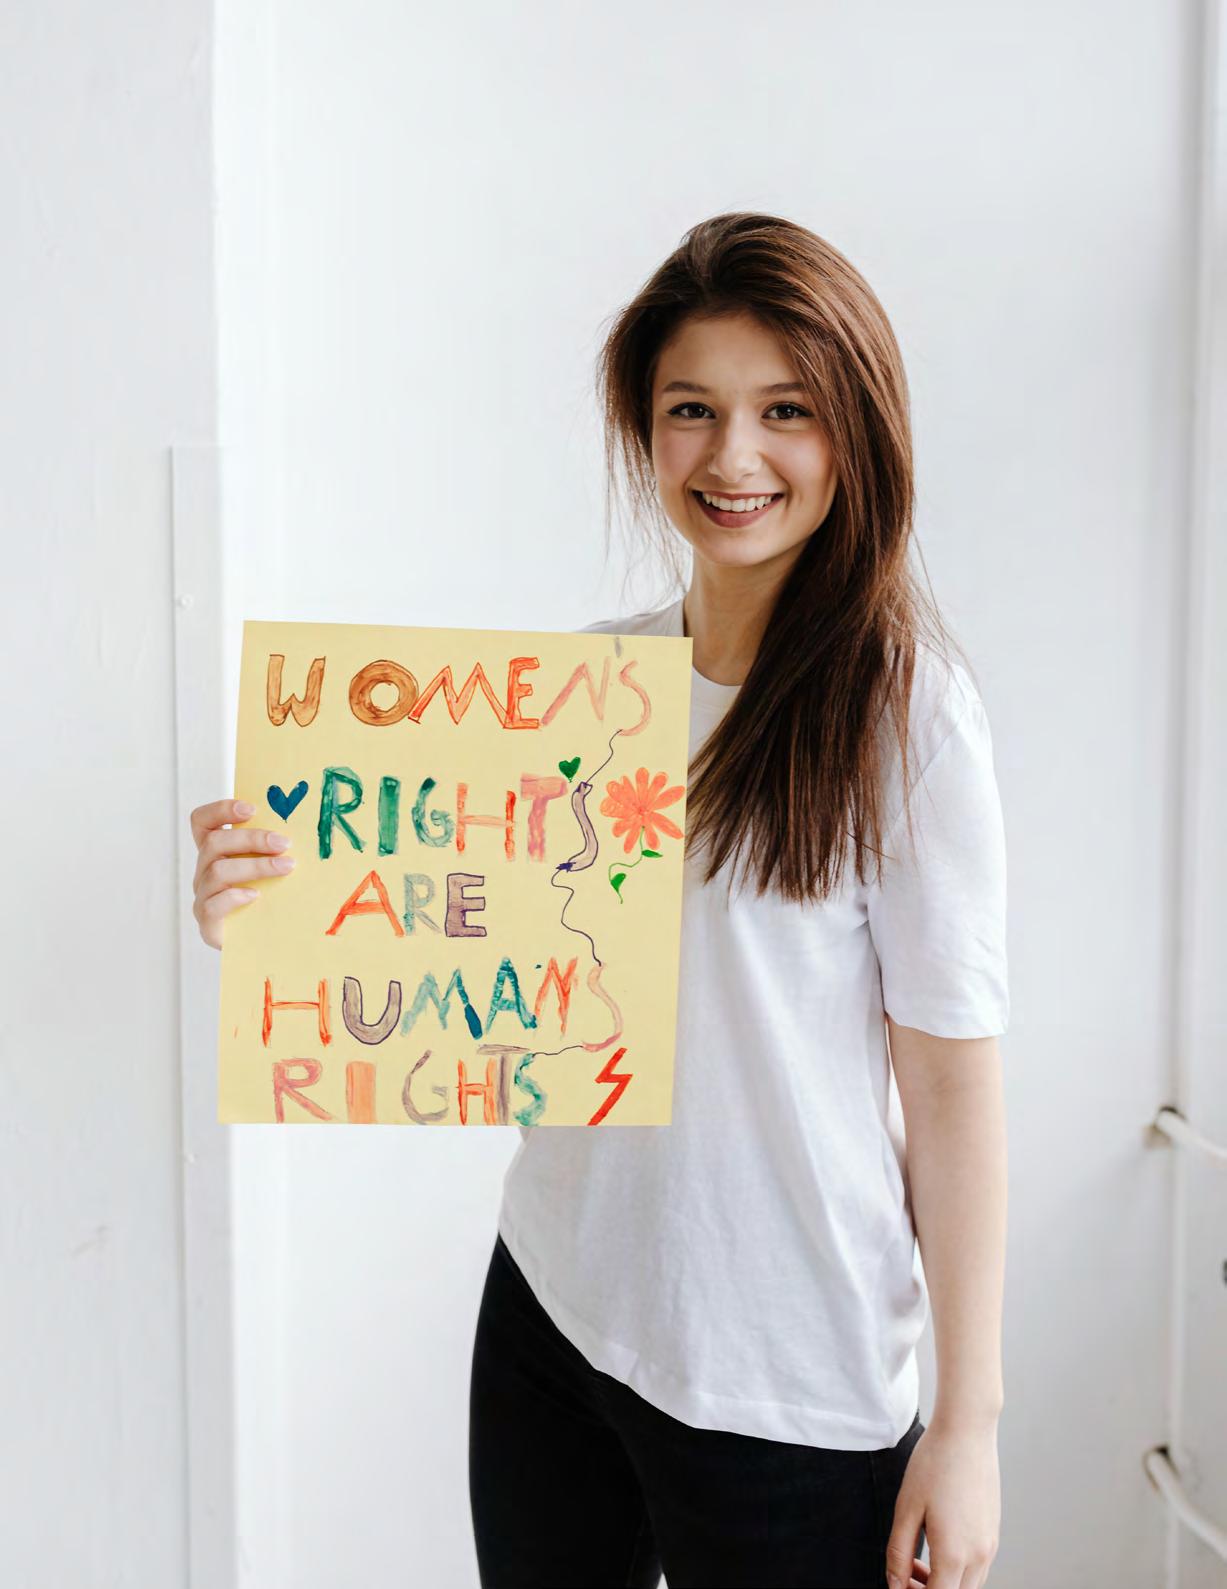 WOMEN'S
RIGHTS
ARE
HUMANS
RIGHTS